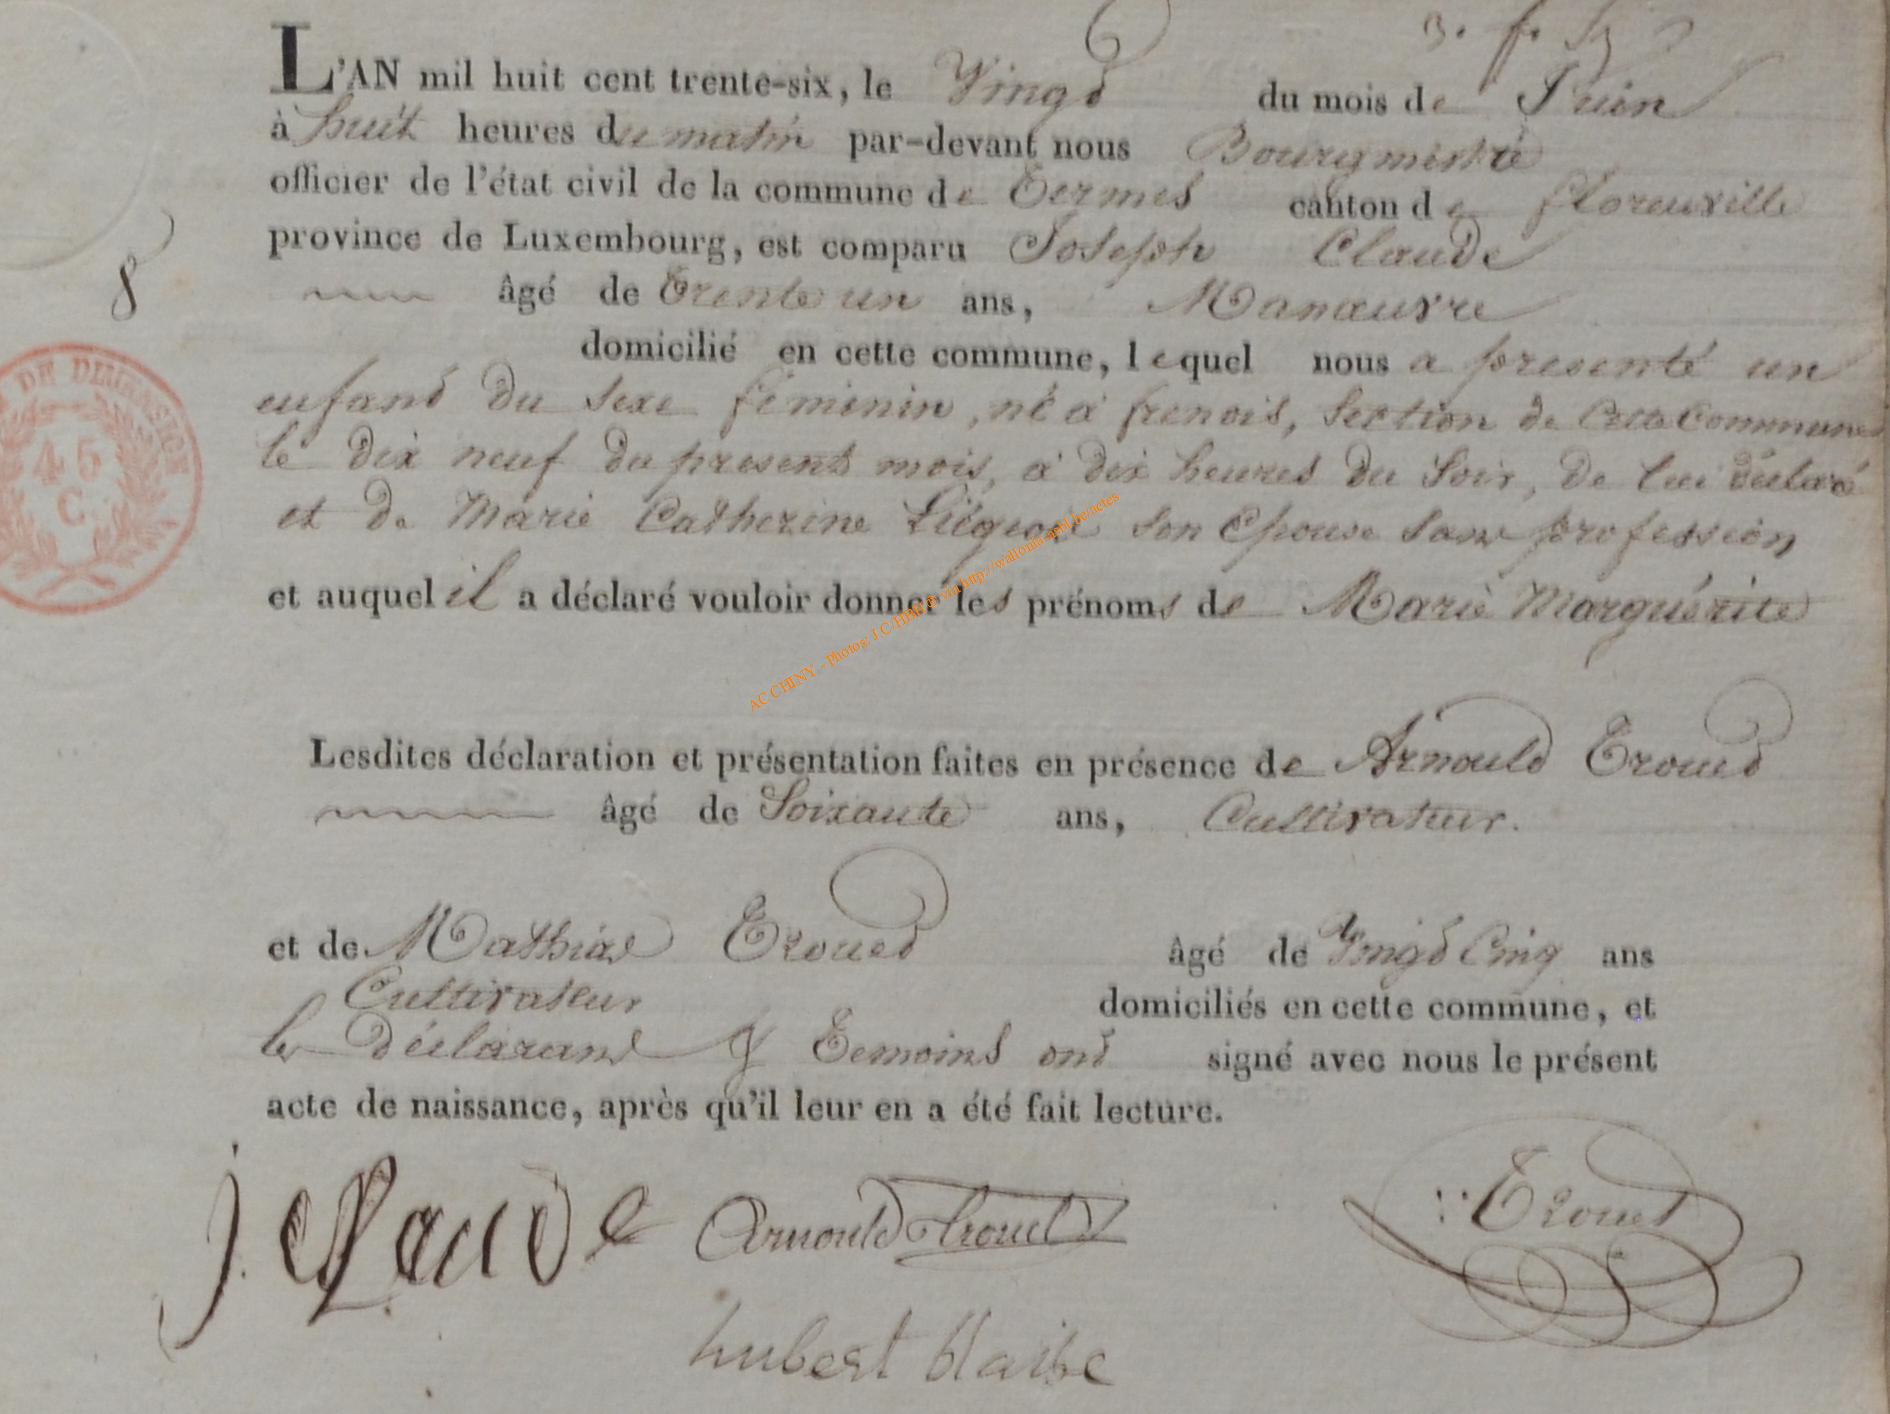 3. f. 5
L'AN mil huit cent trente-six, le Vingt du mois de Juin
à huit heures du matin par-devant nous Bourgmestre
officier de l'état civil de la commune de Termes canton de florenville
province de Luxembourg, est comparu Joseph Claude
âgé de Trente un ans, Manœuvre
8
domicilié en cette commune, lequel nous a presenté un
enfant du sexe féminin, né à frenois, Section de Cette Commune
le dix neuf du present mois, à dix heures du Soir, de lui déclaré
et de Marie Catherine Liégeois son Epouse sans profession
et auquel il a déclaré vouloir donner les prénoms de Marie Marguérite
DE DIMENSION
45
C.
AC CHINY - Photos: J.C. via http://wallonia-asbl.be/actes
Lesdites déclaration et présentation faites en présence de Arnould Trouet
âgé de Soixante ans, Cultivateur.
et de Mathias Trouet âgé de Vingt Cinq ans
Cultivateur domiciliés en cette commune, et
les Déclarant & Temoins ont signé avec nous le présent
acte de naissance, après qu'il leur en a été fait lecture.
j. Claude Arnould Trouet Trouet
hubert blaise